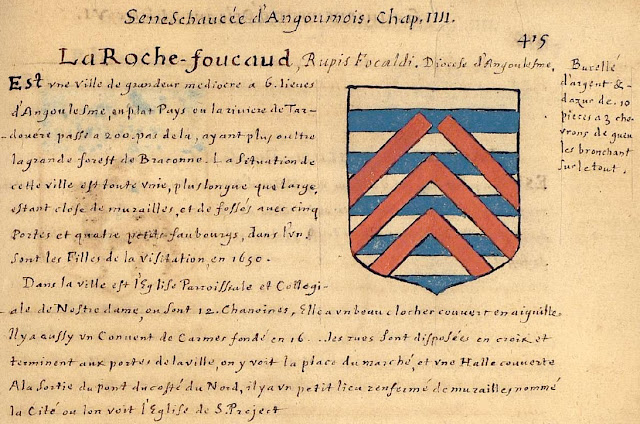 Seneschaucée d'Angoumois. Chap. IIII.
415
La Roche-foucaud, Rupis Focaldi. Diocese d'Angoulesme.
Est vne ville de grandeur mediocre a 6. lieues
d'Angoulesme, en plat Pays ou la riviere de Tar-
-douere passe a 200. pas de la, ayant plus oultre
la grande forest de Braconne. La situation de
cette ville est toute vnie, plus longue que large,
estant close de murailles, et de fossés auec cinq
Portes et quatre petits faubourgs, dans l'vn
sont les Filles de la Visitation, en 1650.
Dans la ville est l'Eglise Parroissiale et Collegi-
-ale de Nostre dame, ou sont 12. Chanoines, Elle a vn beau clocher couuert en aiguille,
Il y a aussy vn Conuent de Carmes fondé en 16... les rues sont disposées en croix et
terminent aux portes de la ville, on y voit la place du marché, et vne Halle couuerte
A la sortie du pont du costé du Nord, il y a vn petit lieu renfermé de murailles nommé
la Cité ou lon voit l'Eglise de S. Project
Burellé
d'argent &
d'azur de .10
pieces a 3 che-
vrons de gueu
les brochant
sur le tout.